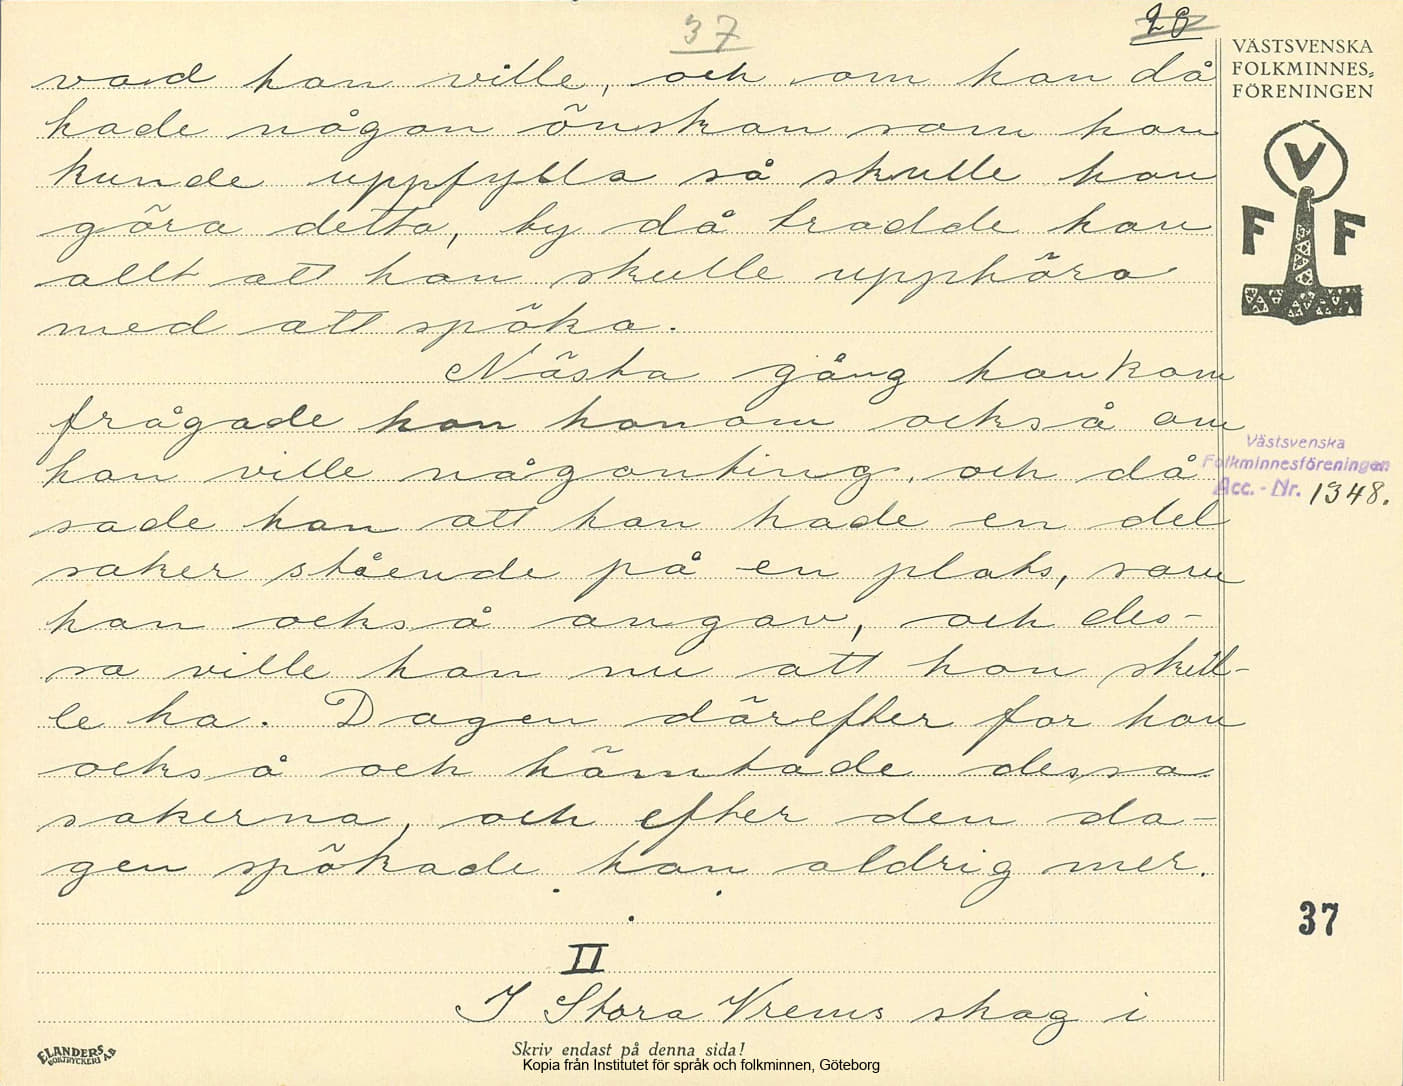 37
28
VÄSTSVENSKA
FOLKMINNES-
FÖRENINGEN
V
F F
vad han ville, och om han då
hade någon önskan som han
kunde uppfylla så skulle han
göra detta, ty då trodde han
allt att han skulle upphöra
med att spöka.
Nästa gång han kom
frågade han honom också om
han ville någonting, och då
sade han att han hade en del
saker stående på en plats, som
han också angav, och des-
sa ville han nu att han skul-
le ha. Dagen därefter for han
också och hämtade dessa
sakerna, och efter den da-
gen spökade han aldrig mer.
II
I Stora Vrems skog i
Västsvenska
Folkminnesföreningen
Acc. - Nr. 1348.
37
ELANDERS
BOKTRYCKERI AB
Skriv endast på denna sida!
Kopia från Institutet för språk och folkminnen, Göteborg